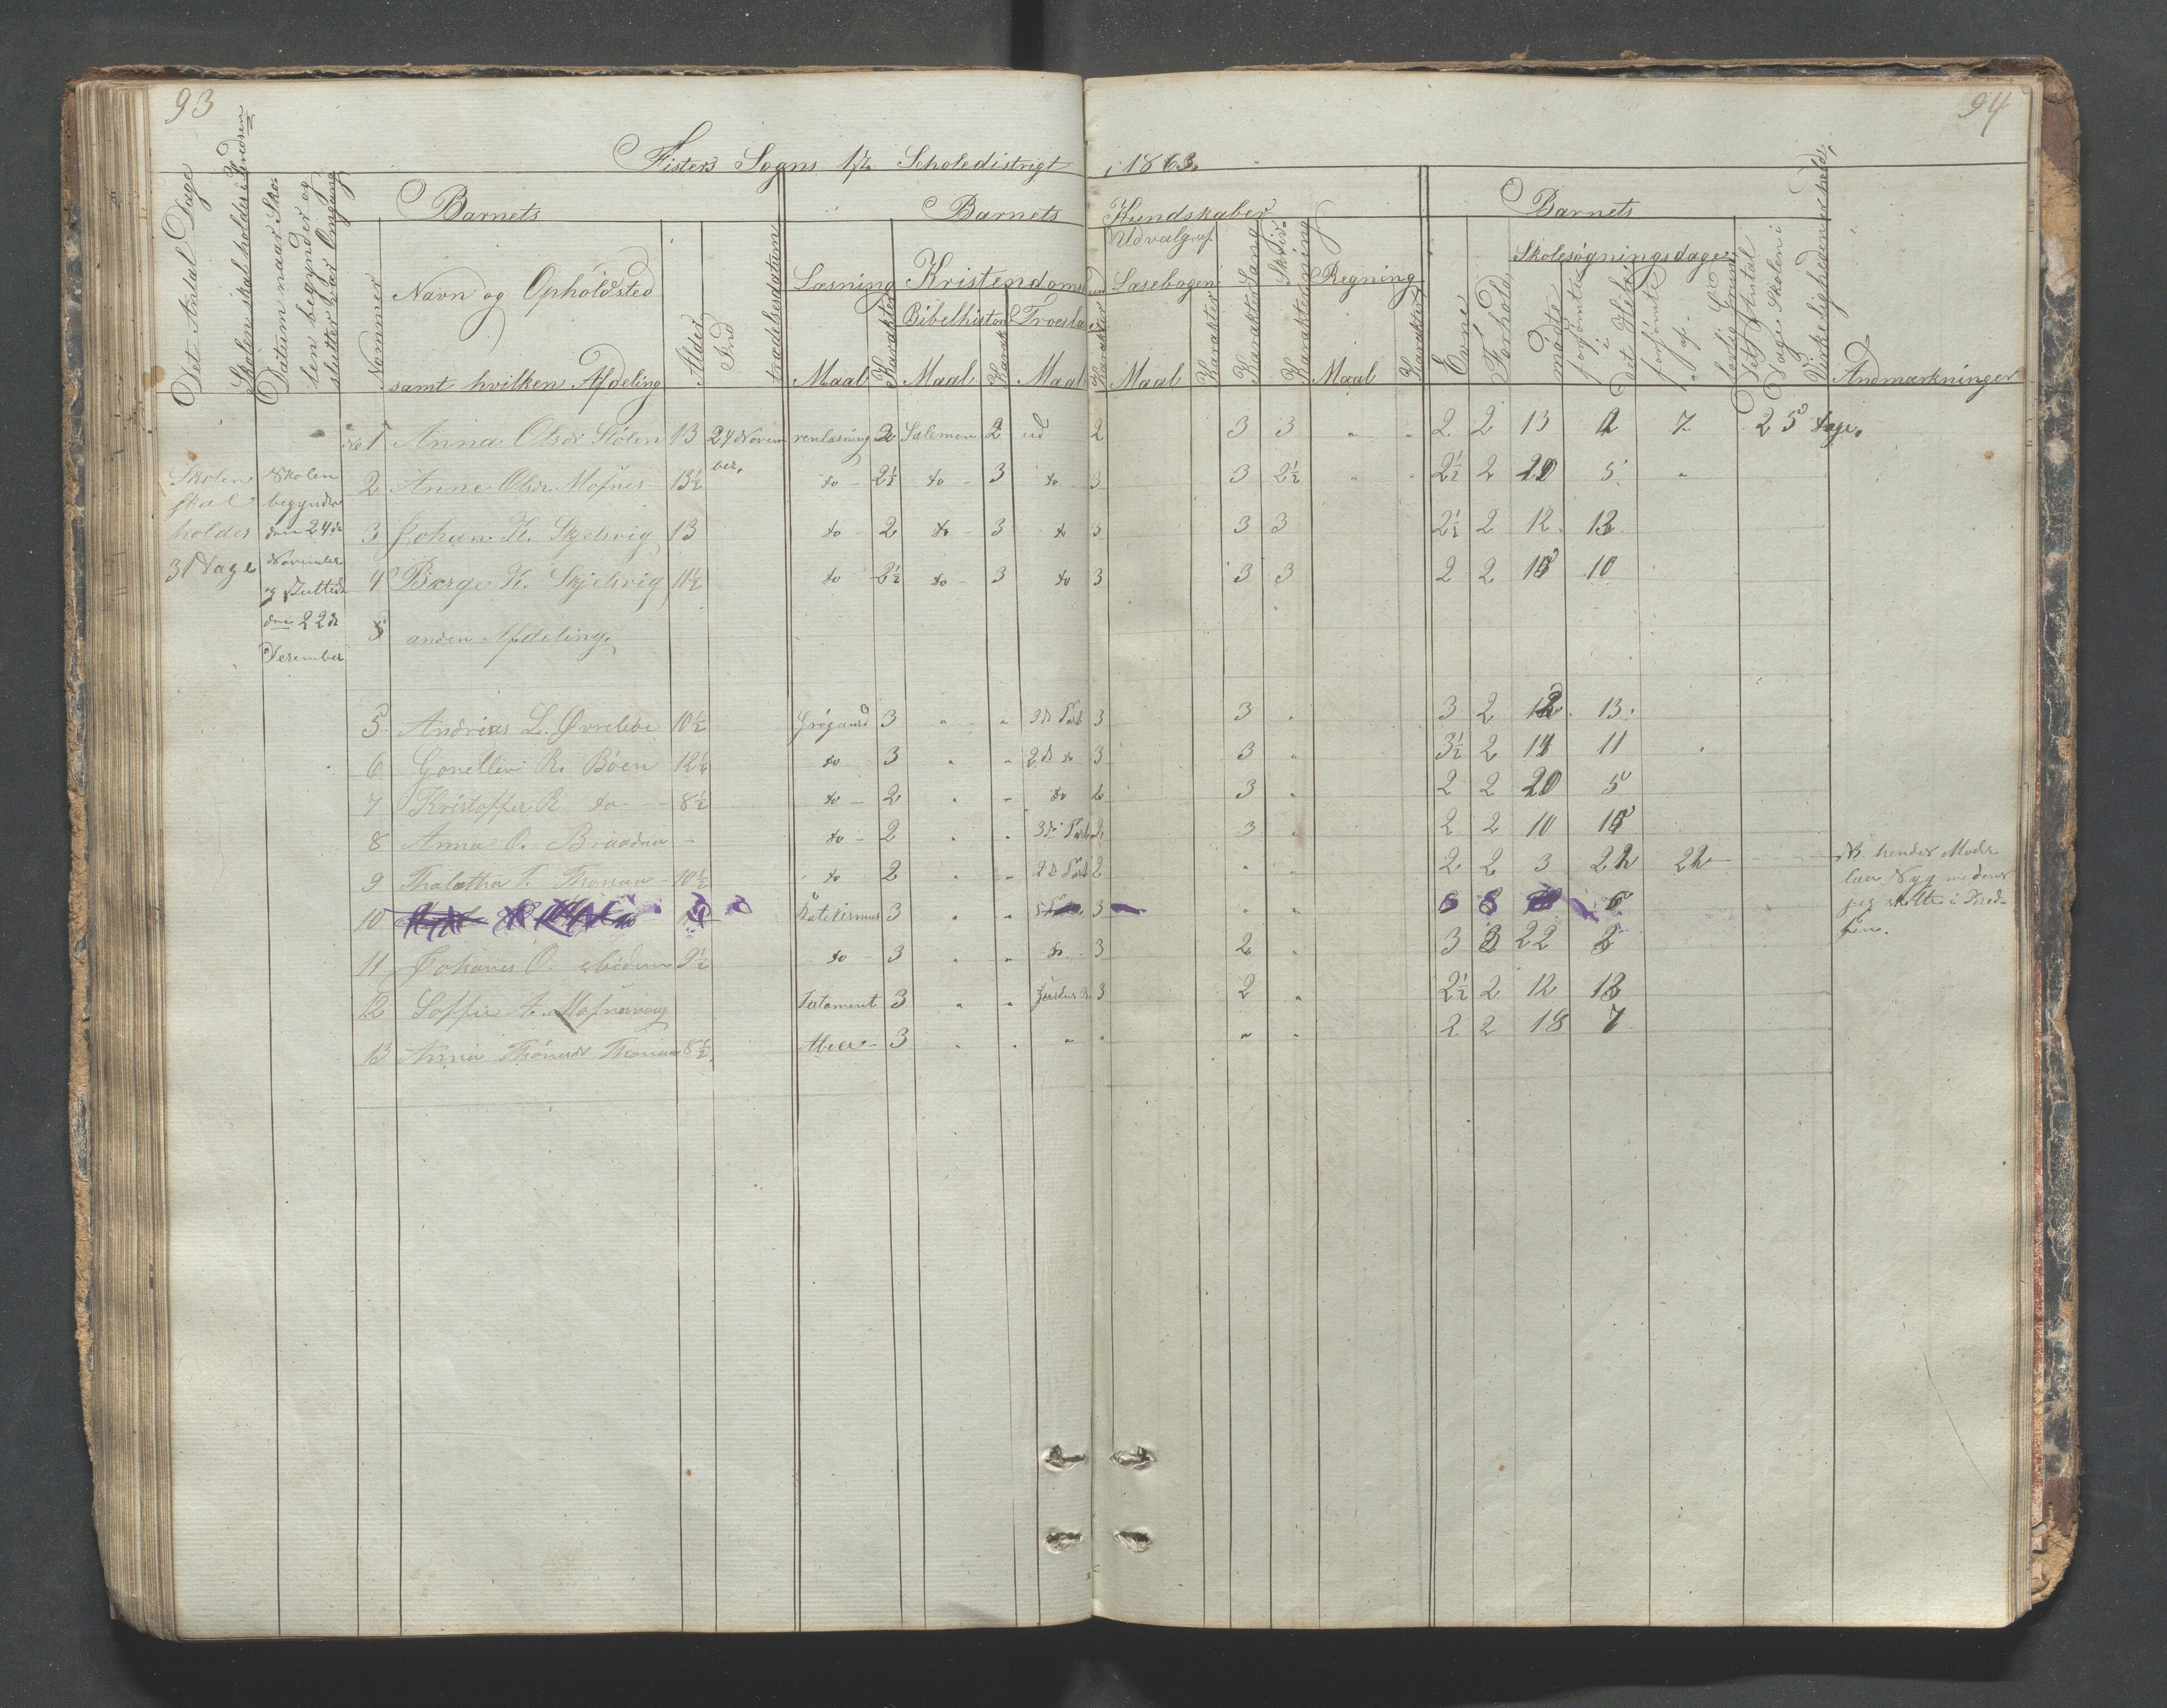 93
94
Fisters Sogns 1ste Scholedistrigt i 1863.
Det Antal Dage Skolen skal holdes i Kredsen
Datum naar Skolen begynder og slutter hver Omgang
Barnets
Nummer
Navn og Opholdsted
samt hvilken Afdeling
Alder
Indtrædelsesdatum
Barnets Kundskaber
Læsning
Maal
Karakter
Kristendoms
Bibelhistorie
Maal
Karakt
Troeslære
Maal
Karakter
Udvalg af
Læsebogen
Maal
Karakter
Karakter Sang
Skriv-
Karakter ning
Regning
Maal
Karakter
Barnets
Evne
Forhold
Skolesøgningsdage
mødte
forsømte i det Hele
forsømte af lovlig Grund
Det Antal Dage Skolen i Virkeligheden er holdt
Andmærkninger
Skolen skal holdes 31 Dage
Skolen begynder den 24de November og sluttede den 22de Desember
No 1 Anna Olsdr Stølen 13 24 November. renlæsning 2 Salemon 2 ud 2 3 3 " " 2 2 13 12 7 25 dage.
2 Anne Olsdr Mosnes 13½ do 2½ do 3 do 3 3 2½ " 2½ 2 20 5 "
3 Johan K. Skjelsvig 13 do 2 do 3 do 3 3 3 2½ 2 12 13
4 Børge K. Skjelsvig 11½ do 2½ do 3 do 3 3 3 2 2 15 10
5 anden Afdeling.
5 Andreas L. Øvrebøe 10½ Grøgaard 3 " " 3de Part 3 3 " 3 2 12 13
6 R. Bøen 12½ do 3 " " 2de do 3 3 " 3½ 2 14 11
7 Kristoffer R do 8½ do 2 " " do 2 3 " 2 2 20 5
8 Anna O. Braadne - do 2 " " 3de Part 2 3 " 2 2 10 15
9 T. 10½ do 2 " " 2de Part 2 " " 2 2 3 22 22
NB. hendes Moder laae Syg medens jeg holdte i Kredsen.
10 Katekismus 3 " " 3 " "
11 Johanes O. 9½ do 3 " " do 3 2 " 3 3 22 3
12 Soffie Testament 3 " " 3 2 " 2½ 2 12 13
13 Anna 8½ Abee 3 " " " " " " 2 2 18 7